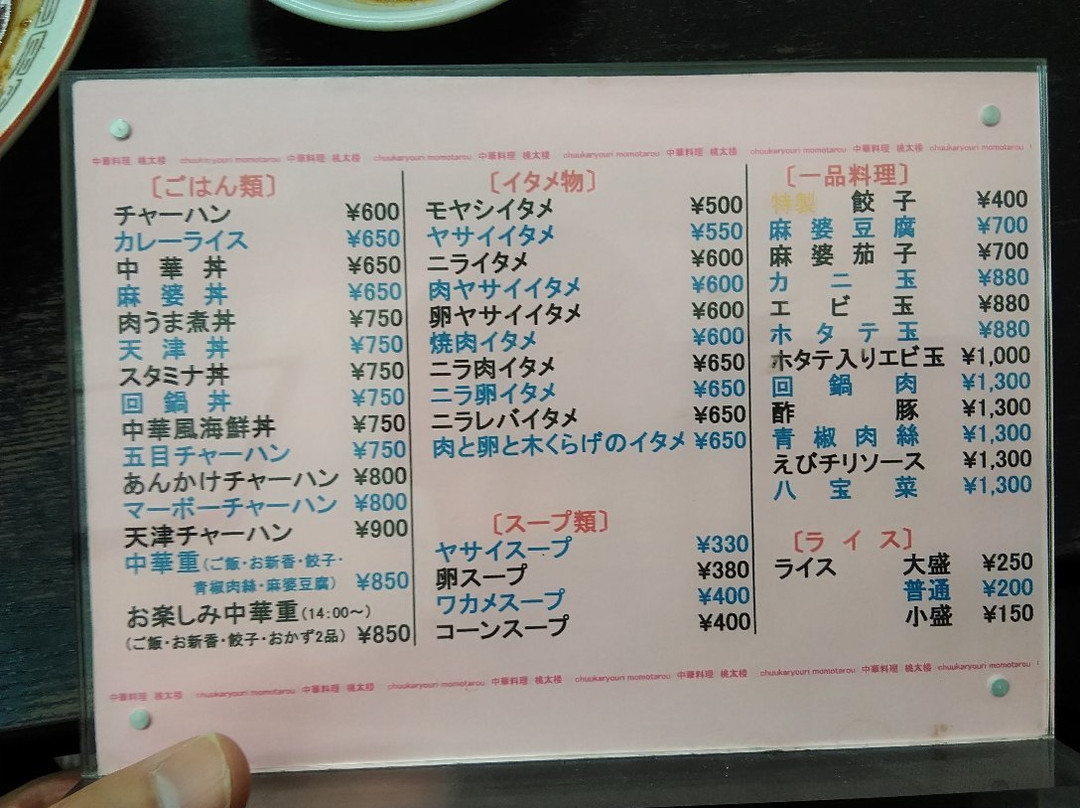 中華料理 桃太楼 chuukaryouri momotarou 中華料理 桃太楼 chuukaryouri momotarou 中華料理 桃太楼 chuukaryouri momotarou 中華料理 桃太楼 chuukaryouri momotarou 中華料理 桃太楼 chuukaryouri momotarou
〔ごはん類〕
チャーハン ¥600
カレーライス ¥650
中華丼 ¥650
麻婆丼 ¥650
肉うま煮丼 ¥750
天津丼 ¥750
スタミナ丼 ¥750
回鍋丼 ¥750
中華風海鮮丼 ¥750
五目チャーハン ¥750
あんかけチャーハン ¥800
マーボーチャーハン ¥800
天津チャーハン ¥900
中華重(ご飯・お新香・餃子・
青椒肉絲・麻婆豆腐) ¥850
お楽しみ中華重(14:00~)
(ご飯・お新香・餃子・おかず2品) ¥850
〔イタメ物〕
モヤシイタメ ¥500
ヤサイイタメ ¥550
ニライタメ ¥600
肉ヤサイイタメ ¥600
卵ヤサイイタメ ¥600
焼肉イタメ ¥600
ニラ肉イタメ ¥650
ニラ卵イタメ ¥650
ニラレバイタメ ¥650
肉と卵と木くらげのイタメ ¥650
〔スープ類〕
ヤサイスープ ¥330
卵スープ ¥380
ワカメスープ ¥400
コーンスープ ¥400
〔一品料理〕
特製 餃子 ¥400
麻婆豆腐 ¥700
麻婆茄子 ¥700
カニ玉 ¥880
エビ玉 ¥880
ホタテ玉 ¥880
ホタテ入りエビ玉 ¥1,000
回鍋肉 ¥1,300
酢豚 ¥1,300
青椒肉絲 ¥1,300
えびチリソース ¥1,300
八宝菜 ¥1,300
〔ライス〕
ライス 大盛 ¥250
普通 ¥200
小盛 ¥150
中華料理 桃太楼 chuukaryouri momotarou 中華料理 桃太楼 chuukaryouri momotarou 中華料理 桃太楼 chuukaryouri momotarou 中華料理 桃太楼 chuukaryouri momotarou 中華料理 桃太楼 chuukaryouri momotarou